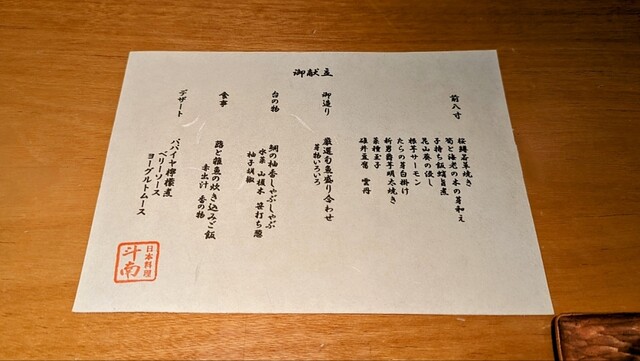 御献立
前八寸
桜鱒若草焼き
筍と海老の木の芽和え
子持ち飯蛸旨煮
花山葵の浸し
サーモン
たらの芽白掛け
新男爵芋明太焼き
菜種玉子
碓井豆腐 雲丹
御造り
厳選旬魚盛り合わせ
芽物いろいろ
台の物
鯛の柚香しゃぶしゃぶ
水菜 山榎木 笹打ち葱
柚子胡椒
食事
蕗と雑魚の炊き込みご飯
赤出汁 香の物
デザート
パパイヤ檸檬煮
ベリーソース
ヨーグルトムース
日本料理
斗南